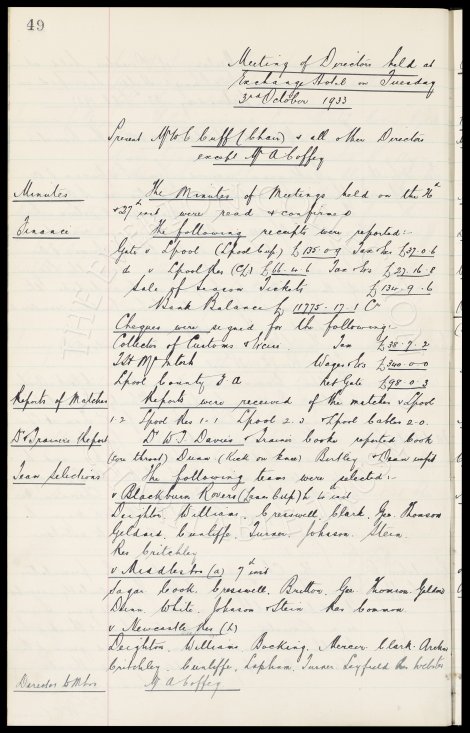 49
Meeting of Directors held at
Exchange Hotel on Tuesday
3rd October 1933
Present Mr W C Cuff (Chair) & all other Directors
except Mr A Coffey
Minutes
The Minutes of Meetings held on the 26th
& 27th inst were read & confirmed
Finance
The following receipts were reported:-
Gate v L'pool (L'pool Cup) £135-0-9 Tax &c £37-0-6
d v L'pool Res (C/L) £66-4-6 Tax &c £27-16-8
Sale of Season Tickets £134-9-6
Bank Balance £11775-17-1 Cr
Cheques were signed for the following:-
Collector of Customs & Excise Tax £38-7-2
T H McIntosh Wages &c £340-0-0
L'pool County F A Net Gate £98-0-3
Reports of Matches
Reports were received of the matches v L'pool
1-2 L'pool Res 1-1 L'pool 2-3 & L'pool Cables 2-0.
Dr & Trainers Report
Dr W J Davies & Trainer Cooke reported Cook
(sore throat) Dunn (Kick on knee) Bentley & Dean unfit
Team Selections
The following teams were selected:-
v Blackburn Rovers (Lancs Cup) h 4th inst
Deighton, Williams, Cresswell, Clark, Gee, Thomson
Geldard, Cunliffe, Turner, Johnson, Stein.
Res Critchley
v Middlesbro (a) 7th inst
Sagar Cook, Cresswell, Britton, Gee Thomson Geldard
Dunn, White, Johnson & Stein Res Common
v Newcastle Res (h)
Deighton, Williams Bocking, Mercer Clark, Archer
Critchley, Cunliffe, Lapham, Turner Leyfield Res Webster
Director to M'bro
Mr A Coffey